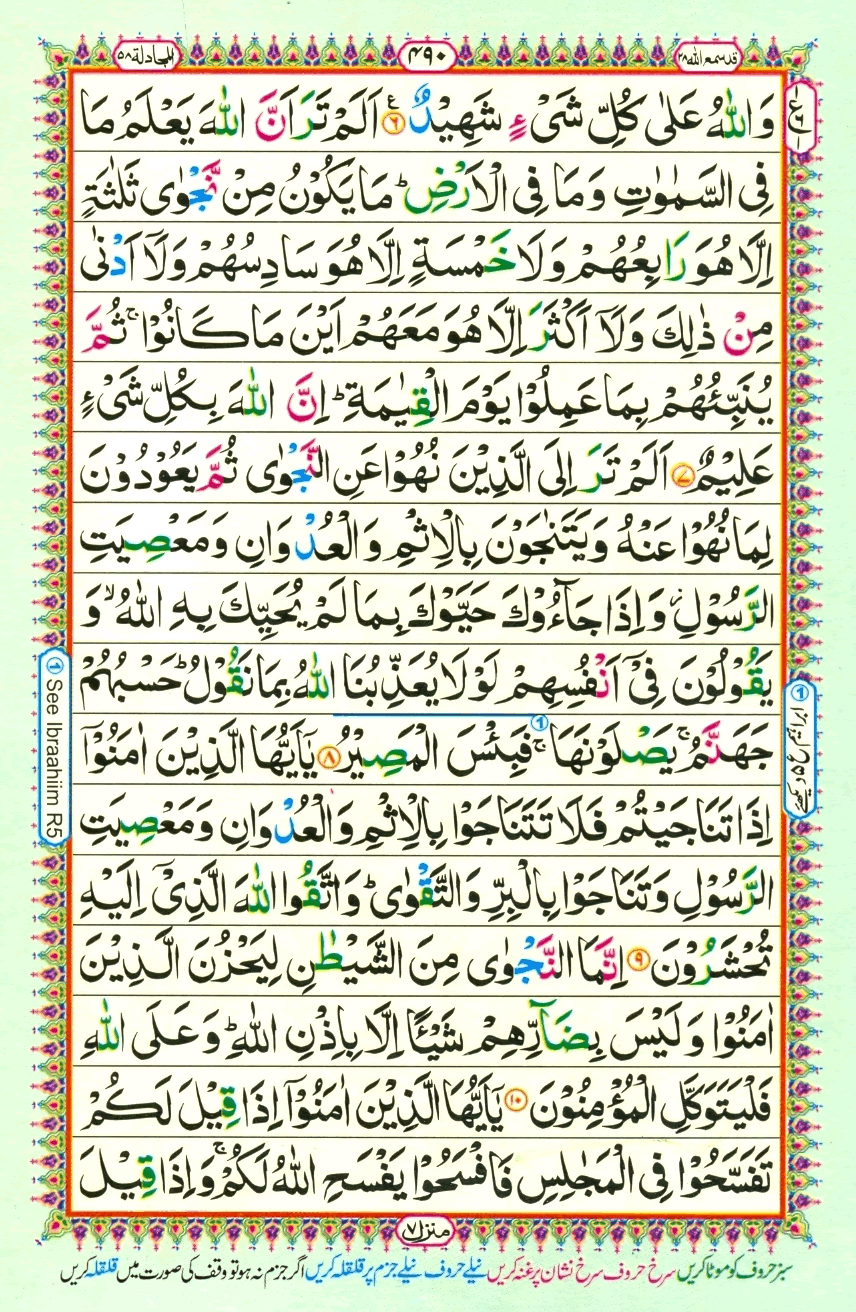 المجادلة ۵۸
۴۹۰
قد سمع الله ۲۸
وَاللّٰهُ عَلٰى كُلِّ شَىْءٍ شَهِيْدٌ ﴿۶﴾ اَلَمْ تَرَ اَنَّ اللّٰهَ يَعْلَمُ مَا
فِى السَّمٰوٰتِ وَمَا فِى الْاَرْضِ ؕ مَا يَكُوْنُ مِنْ نَّجْوٰى ثَلٰثَةٍ
اِلَّا هُوَ رَابِعُهُمْ وَلَا خَمْسَةٍ اِلَّا هُوَ سَادِسُهُمْ وَلَاۤ اَدْنٰى
مِنْ ذٰلِكَ وَلَاۤ اَكْثَرَ اِلَّا هُوَ مَعَهُمْ اَيْنَ مَا كَانُوْا ۚ ثُمَّ
يُنَبِّئُهُمْ بِمَا عَمِلُوْا يَوْمَ الْقِيٰمَةِ ؕ اِنَّ اللّٰهَ بِكُلِّ شَىْءٍ
عَلِيْمٌ ﴿۷﴾ اَلَمْ تَرَ اِلَى الَّذِيْنَ نُهُوْا عَنِ النَّجْوٰى ثُمَّ يَعُوْدُوْنَ
لِمَا نُهُوْا عَنْهُ وَيَتَنٰجَوْنَ بِالْاِثْمِ وَالْعُدْوَانِ وَمَعْصِيَتِ
الرَّسُوْلِ ؗ وَاِذَا جَآءُوْكَ حَيَّوْكَ بِمَا لَمْ يُحَيِّكَ بِهِ اللّٰهُ ۙ وَ
يَقُوْلُوْنَ فِىْۤ اَنْفُسِهِمْ لَوْلَا يُعَذِّبُنَا اللّٰهُ بِمَا نَقُوْلُ ؕ حَسْبُهُمْ
جَهَنَّمُ ۚ يَصْلَوْنَهَا ۚ فَبِئْسَ الْمَصِيْرُ ﴿۸﴾ يٰۤاَيُّهَا الَّذِيْنَ اٰمَنُوْۤا
اِذَا تَنَاجَيْتُمْ فَلَا تَتَنَاجَوْا بِالْاِثْمِ وَالْعُدْوَانِ وَمَعْصِيَتِ
الرَّسُوْلِ وَتَنَاجَوْا بِالْبِرِّ وَالتَّقْوٰى ؕ وَاتَّقُوا اللّٰهَ الَّذِىْۤ اِلَيْهِ
تُحْشَرُوْنَ ﴿۹﴾ اِنَّمَا النَّجْوٰى مِنَ الشَّيْطٰنِ لِيَحْزُنَ الَّذِيْنَ
اٰمَنُوْا وَلَيْسَ بِضَآرِّهِمْ شَيْـًٔا اِلَّا بِاِذْنِ اللّٰهِ ؕ وَعَلَى اللّٰهِ
فَلْيَتَوَكَّلِ الْمُؤْمِنُوْنَ ﴿۱۰﴾ يٰۤاَيُّهَا الَّذِيْنَ اٰمَنُوْۤا اِذَا قِيْلَ لَكُمْ
تَفَسَّحُوْا فِى الْمَجٰلِسِ فَافْسَحُوْا يَفْسَحِ اللّٰهُ لَكُمْ ۚ وَاِذَا قِيْلَ
ابراہیم ع۵ دیکھئے
See Ibraahiim R5
منزل ۷
سبز حروف کو موٹا کریں سرخ حروف سرخ نشان پر غنہ کریں نیلے حروف نیلے جزم پر قلقلہ کریں اگر جزم نہ ہو تو وقف کی صورت میں قلقلہ کریں